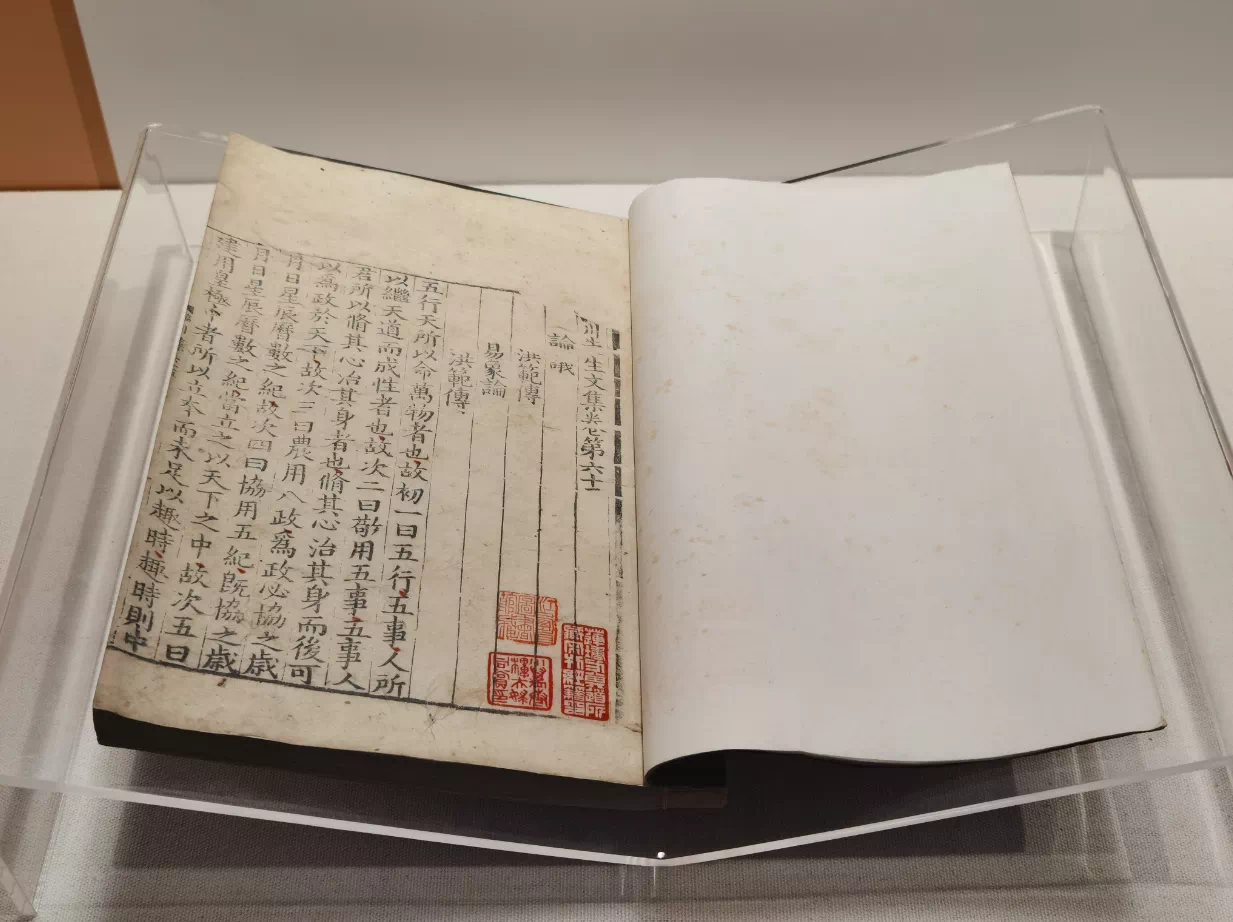 川先生文集卷第六十一
論
洪範傳
易象論
洪範傳
五行天所以命萬物者也故初一曰五行五事人所
以繼天道而成性者也故次二曰敬用五事五事人
君所以脩其心治其身者也脩其心治其身而後可
以爲政於天下故次三曰農用八政爲政必協之歲
月日星辰曆數之紀故次四曰協用五紀旣協之歲
月日星辰曆數之紀當立之以天下之中故次五曰
建用皇極中者所以立本而未足以趣時趣時則中